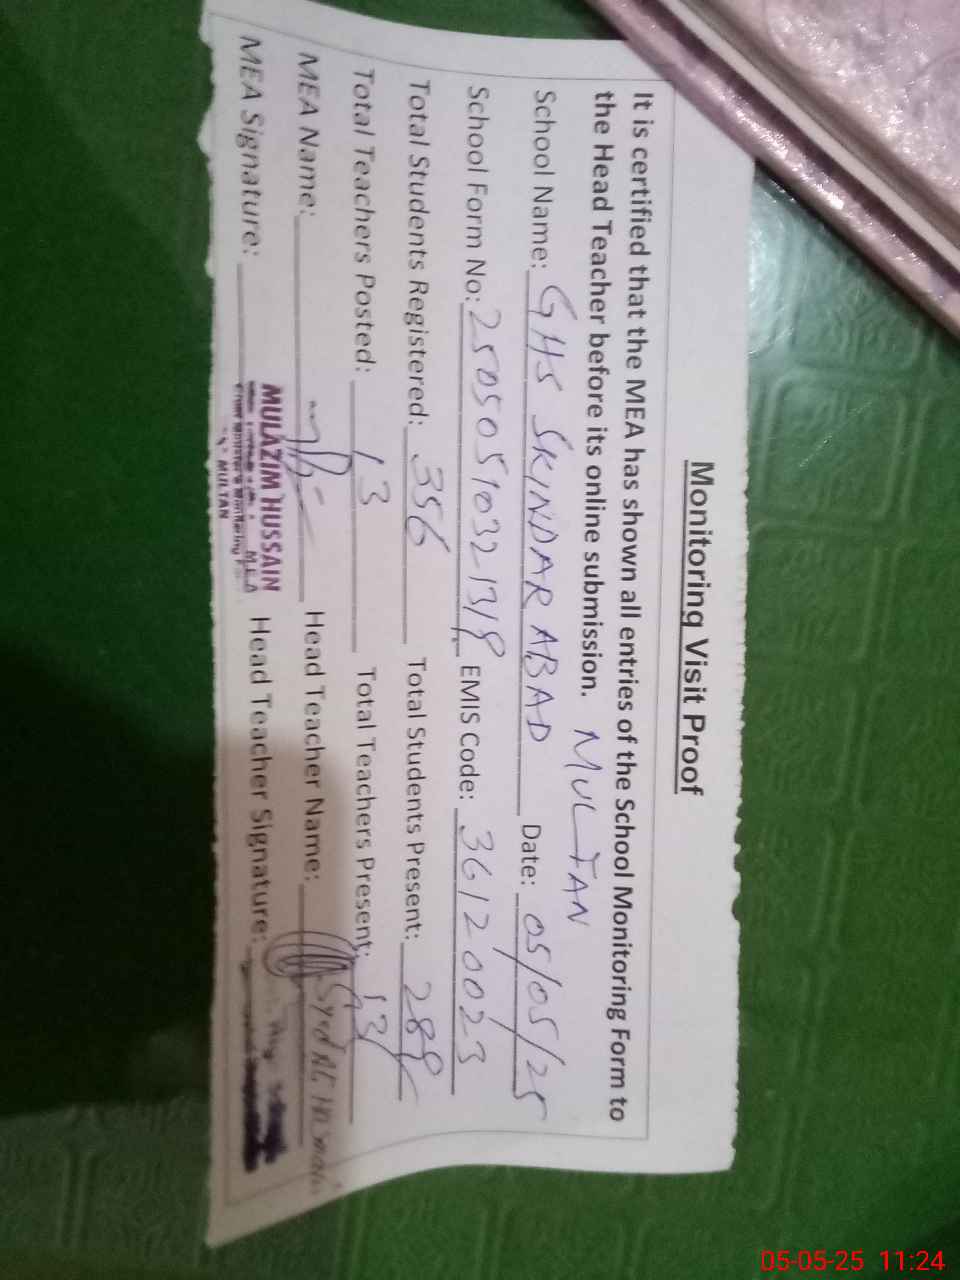 Monitoring Visit Proof
It is certified that the MEA has shown all entries of the School Monitoring Form to
the Head Teacher before its online submission. MULTAN
School Name: GHS SKINDAR ABAD Date: 05/05/25
School Form No: EMIS Code: 36120023
Total Students Registered: 356 Total Students Present: 289
Total Teachers Posted: 13 Total Teachers Present: 13
MEA Name: Head Teacher Name: Syed
MEA Signature: Head Teacher Signature:
MULAZIM HUSSAIN
M.E.A
MULTAN
05-05-25 11:24